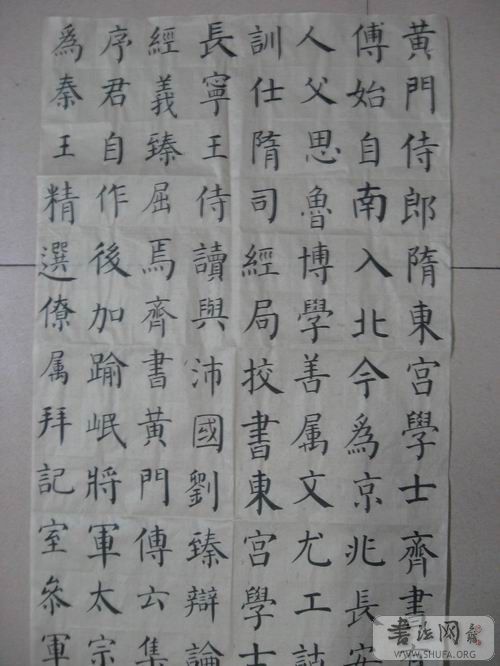 黄門侍郎隋東宮學士齊書
傳始自南入北今爲京兆長安
人父思魯博學善属文尤工詁
訓仕隋司經局挍書東宮學士
長寧王侍讀與沛國劉臻辯論
經義臻屈焉齊書黄門傳云集
序君自作後加踰岷將軍太宗
爲秦王精選僚属拜記室叅軍
書法网
WWW.SHUFA.ORG